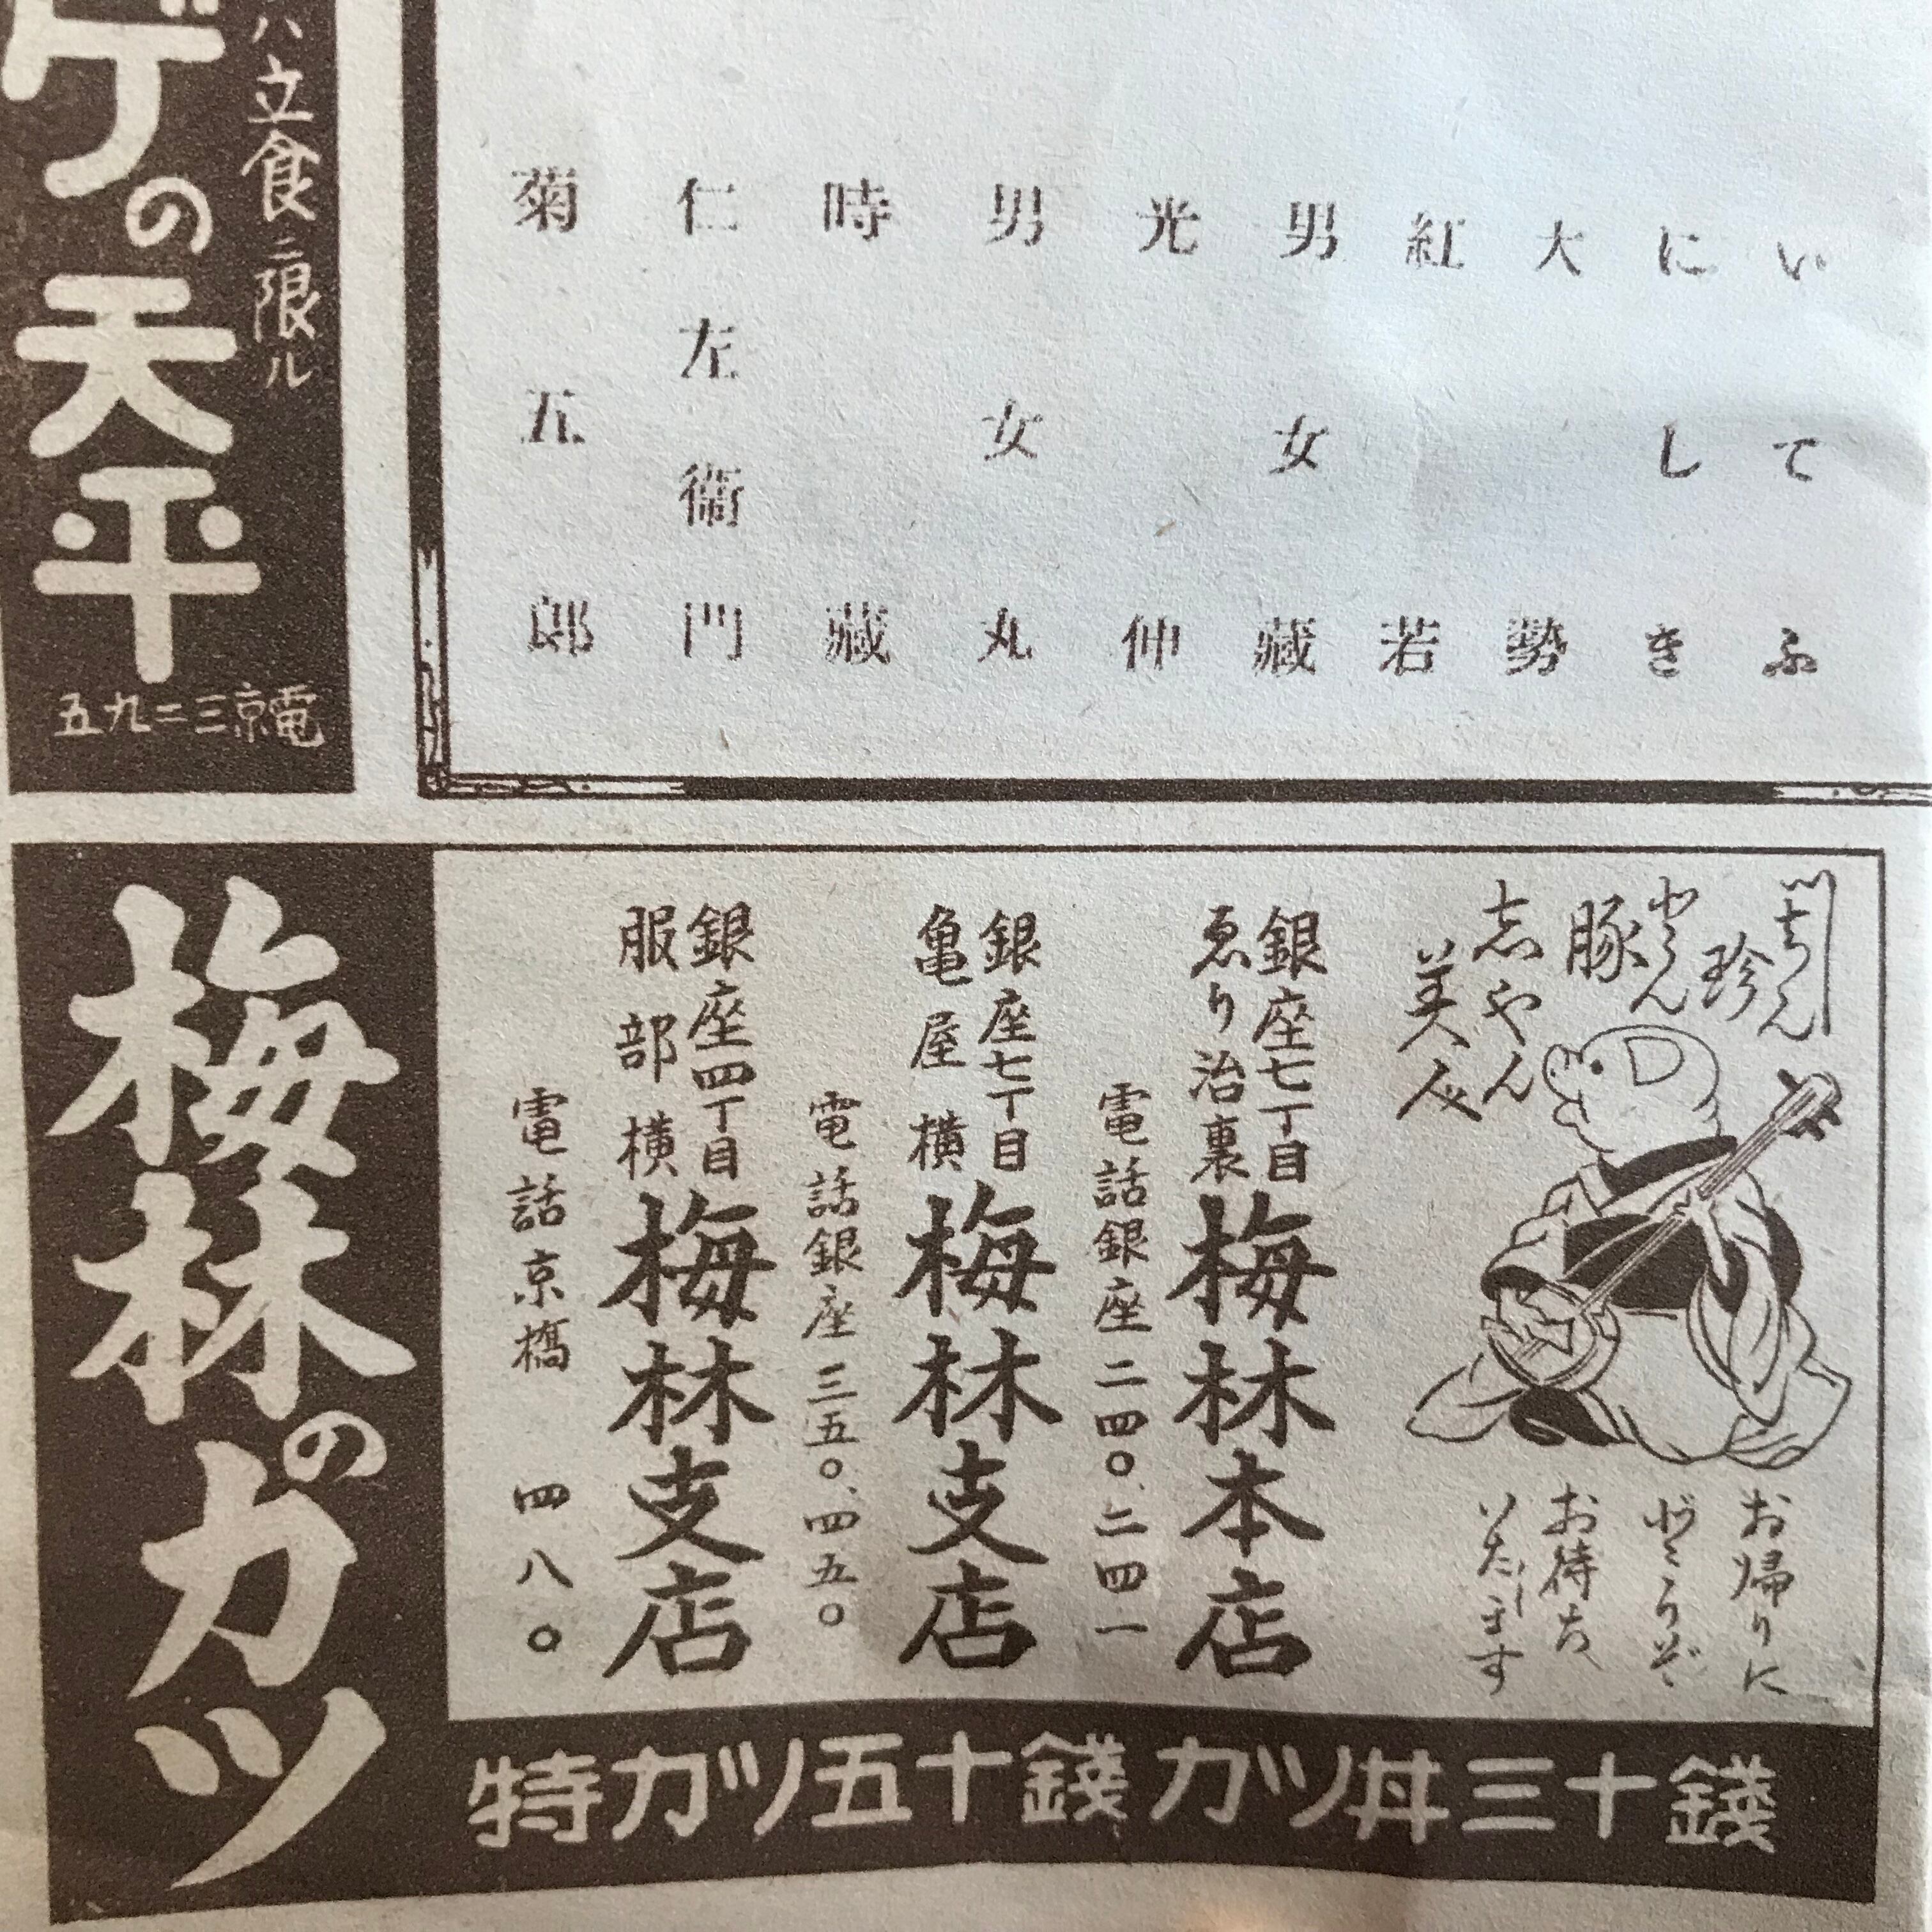 いてふ
にしき
大勢
紅若
男女蔵
光伸
男女丸
時蔵
仁左衞門
菊五郎
ハ立食ニ限ル
ゲの天平
電京三二九五
珍
豚
志やん
美人
お帰りに
どうぞ
お待ち
いたします
銀座七丁目
ゑり治裏
梅林本店
電話銀座二四〇、二四一
銀座七丁目
亀屋横
梅林支店
電話銀座三五〇、四五〇
銀座四丁目
服部横
梅林支店
電話京橋 四八〇
梅林のカツ
特カツ五十錢 カツ丼三十錢